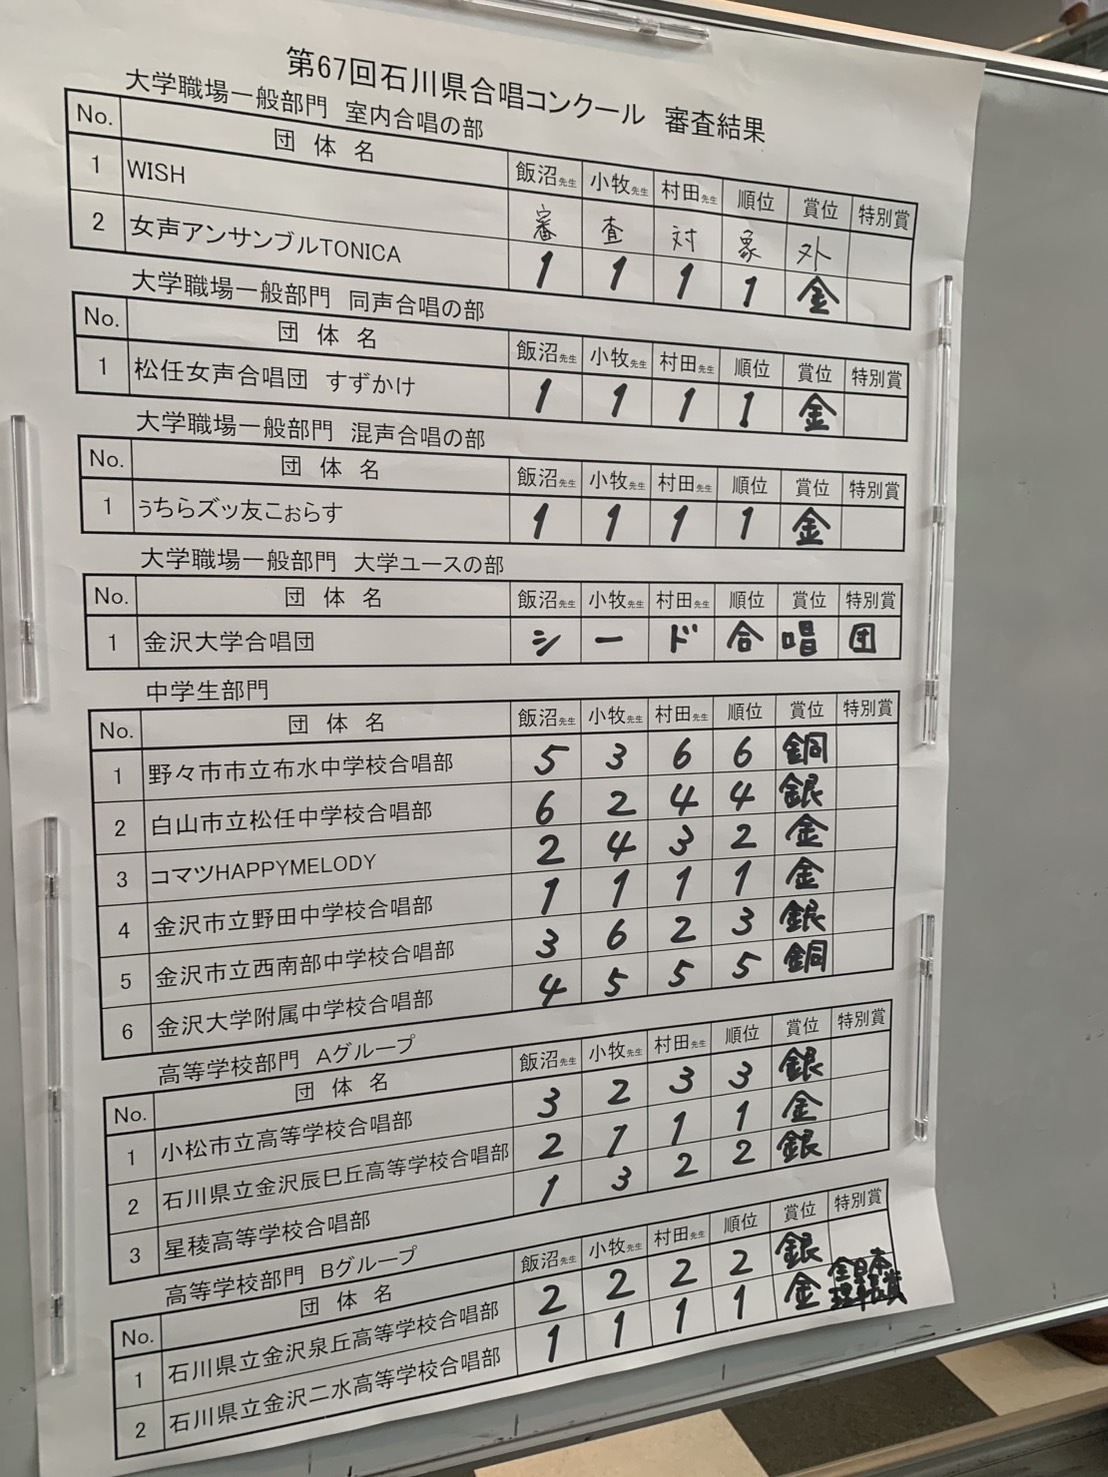 第67回石川県合唱コンクール　審査結果
大学職場一般部門　室内合唱の部
No. 団体名 飯沼先生 小牧先生 村田先生 順位 賞位 特別賞
1 WISH 審 査 対 象 外
2 女声アンサンブルTONICA 1 1 1 1 金
大学職場一般部門　同声合唱の部
No. 団体名 飯沼先生 小牧先生 村田先生 順位 賞位 特別賞
1 松任女声合唱団　すずかけ 1 1 1 1 金
大学職場一般部門　混声合唱の部
No. 団体名 飯沼先生 小牧先生 村田先生 順位 賞位 特別賞
1 ぅちらズッ友こぉらす 1 1 1 1 金
大学職場一般部門　大学ユースの部
No. 団体名 飯沼先生 小牧先生 村田先生 順位 賞位 特別賞
1 金沢大学合唱団 シ ー ド 合 唱 団
中学生部門
No. 団体名 飯沼先生 小牧先生 村田先生 順位 賞位 特別賞
1 野々市市立布水中学校合唱部 5 3 6 6 銅
2 白山市立松任中学校合唱部 6 2 4 4 銀
3 コマツHAPPYMELODY 2 4 3 2 金
4 金沢市立野田中学校合唱部 1 1 1 1 金
5 金沢市立西南部中学校合唱部 3 6 2 3 銀
6 金沢大学附属中学校合唱部 4 5 5 5 銅
高等学校部門　Aグループ
No. 団体名 飯沼先生 小牧先生 村田先生 順位 賞位 特別賞
1 小松市立高等学校合唱部 3 2 3 3 銀
2 石川県立金沢辰巳丘高等学校合唱部 2 1 1 1 金
3 星稜高等学校合唱部 1 3 2 2 銀
高等学校部門　Bグループ
No. 団体名 飯沼先生 小牧先生 村田先生 順位 賞位 特別賞
1 石川県立金沢泉丘高等学校合唱部 2 2 2 2 銀
2 石川県立金沢二水高等学校合唱部 1 1 1 1 金 全日本理事長賞